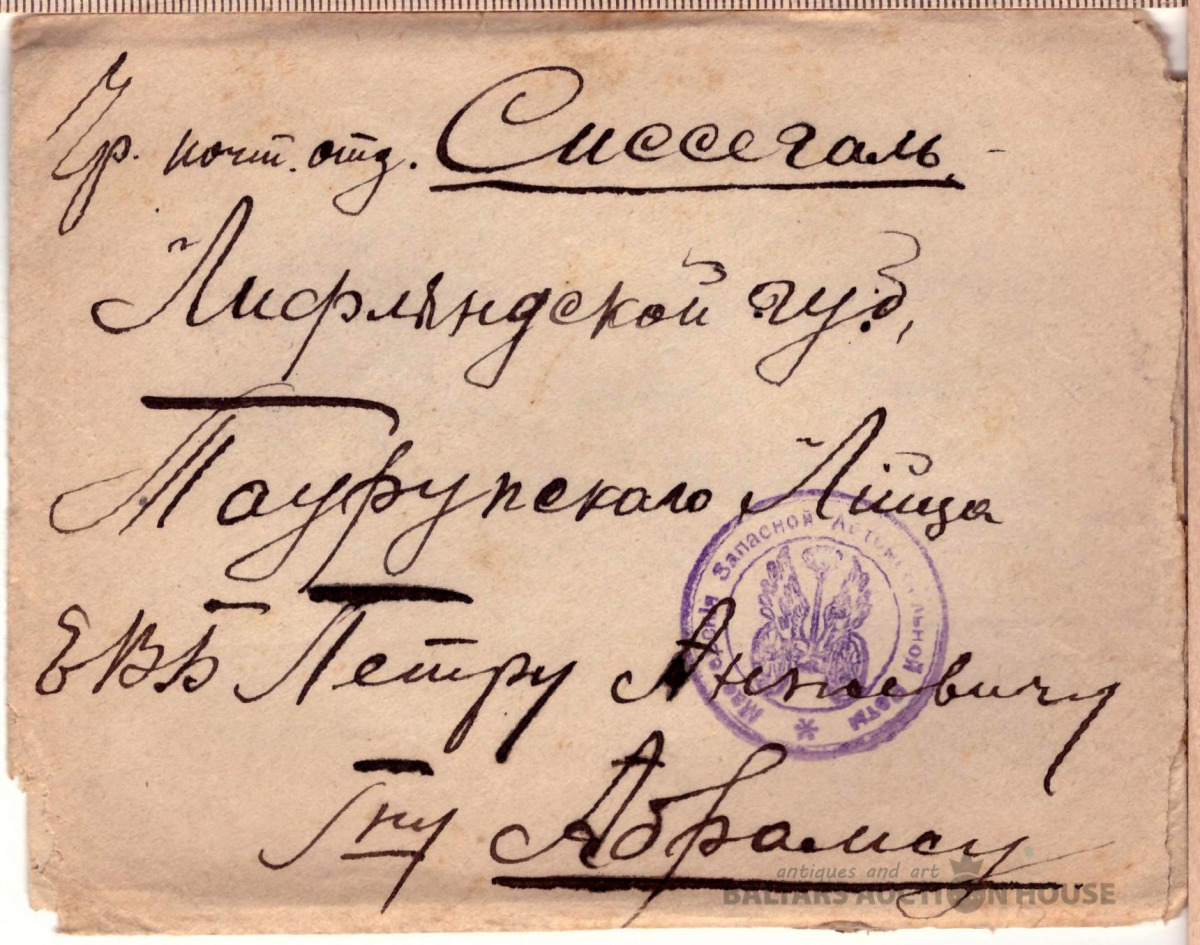 Чр. почт. отд. Сиссегаль
Лифляндской губ,
Таурупскаго
ЕВБ Петру
Гну Абрамсу
Мастерския Запасной Автомобильной Роты
antiques and art
BALTARS AUCTION HOUSE